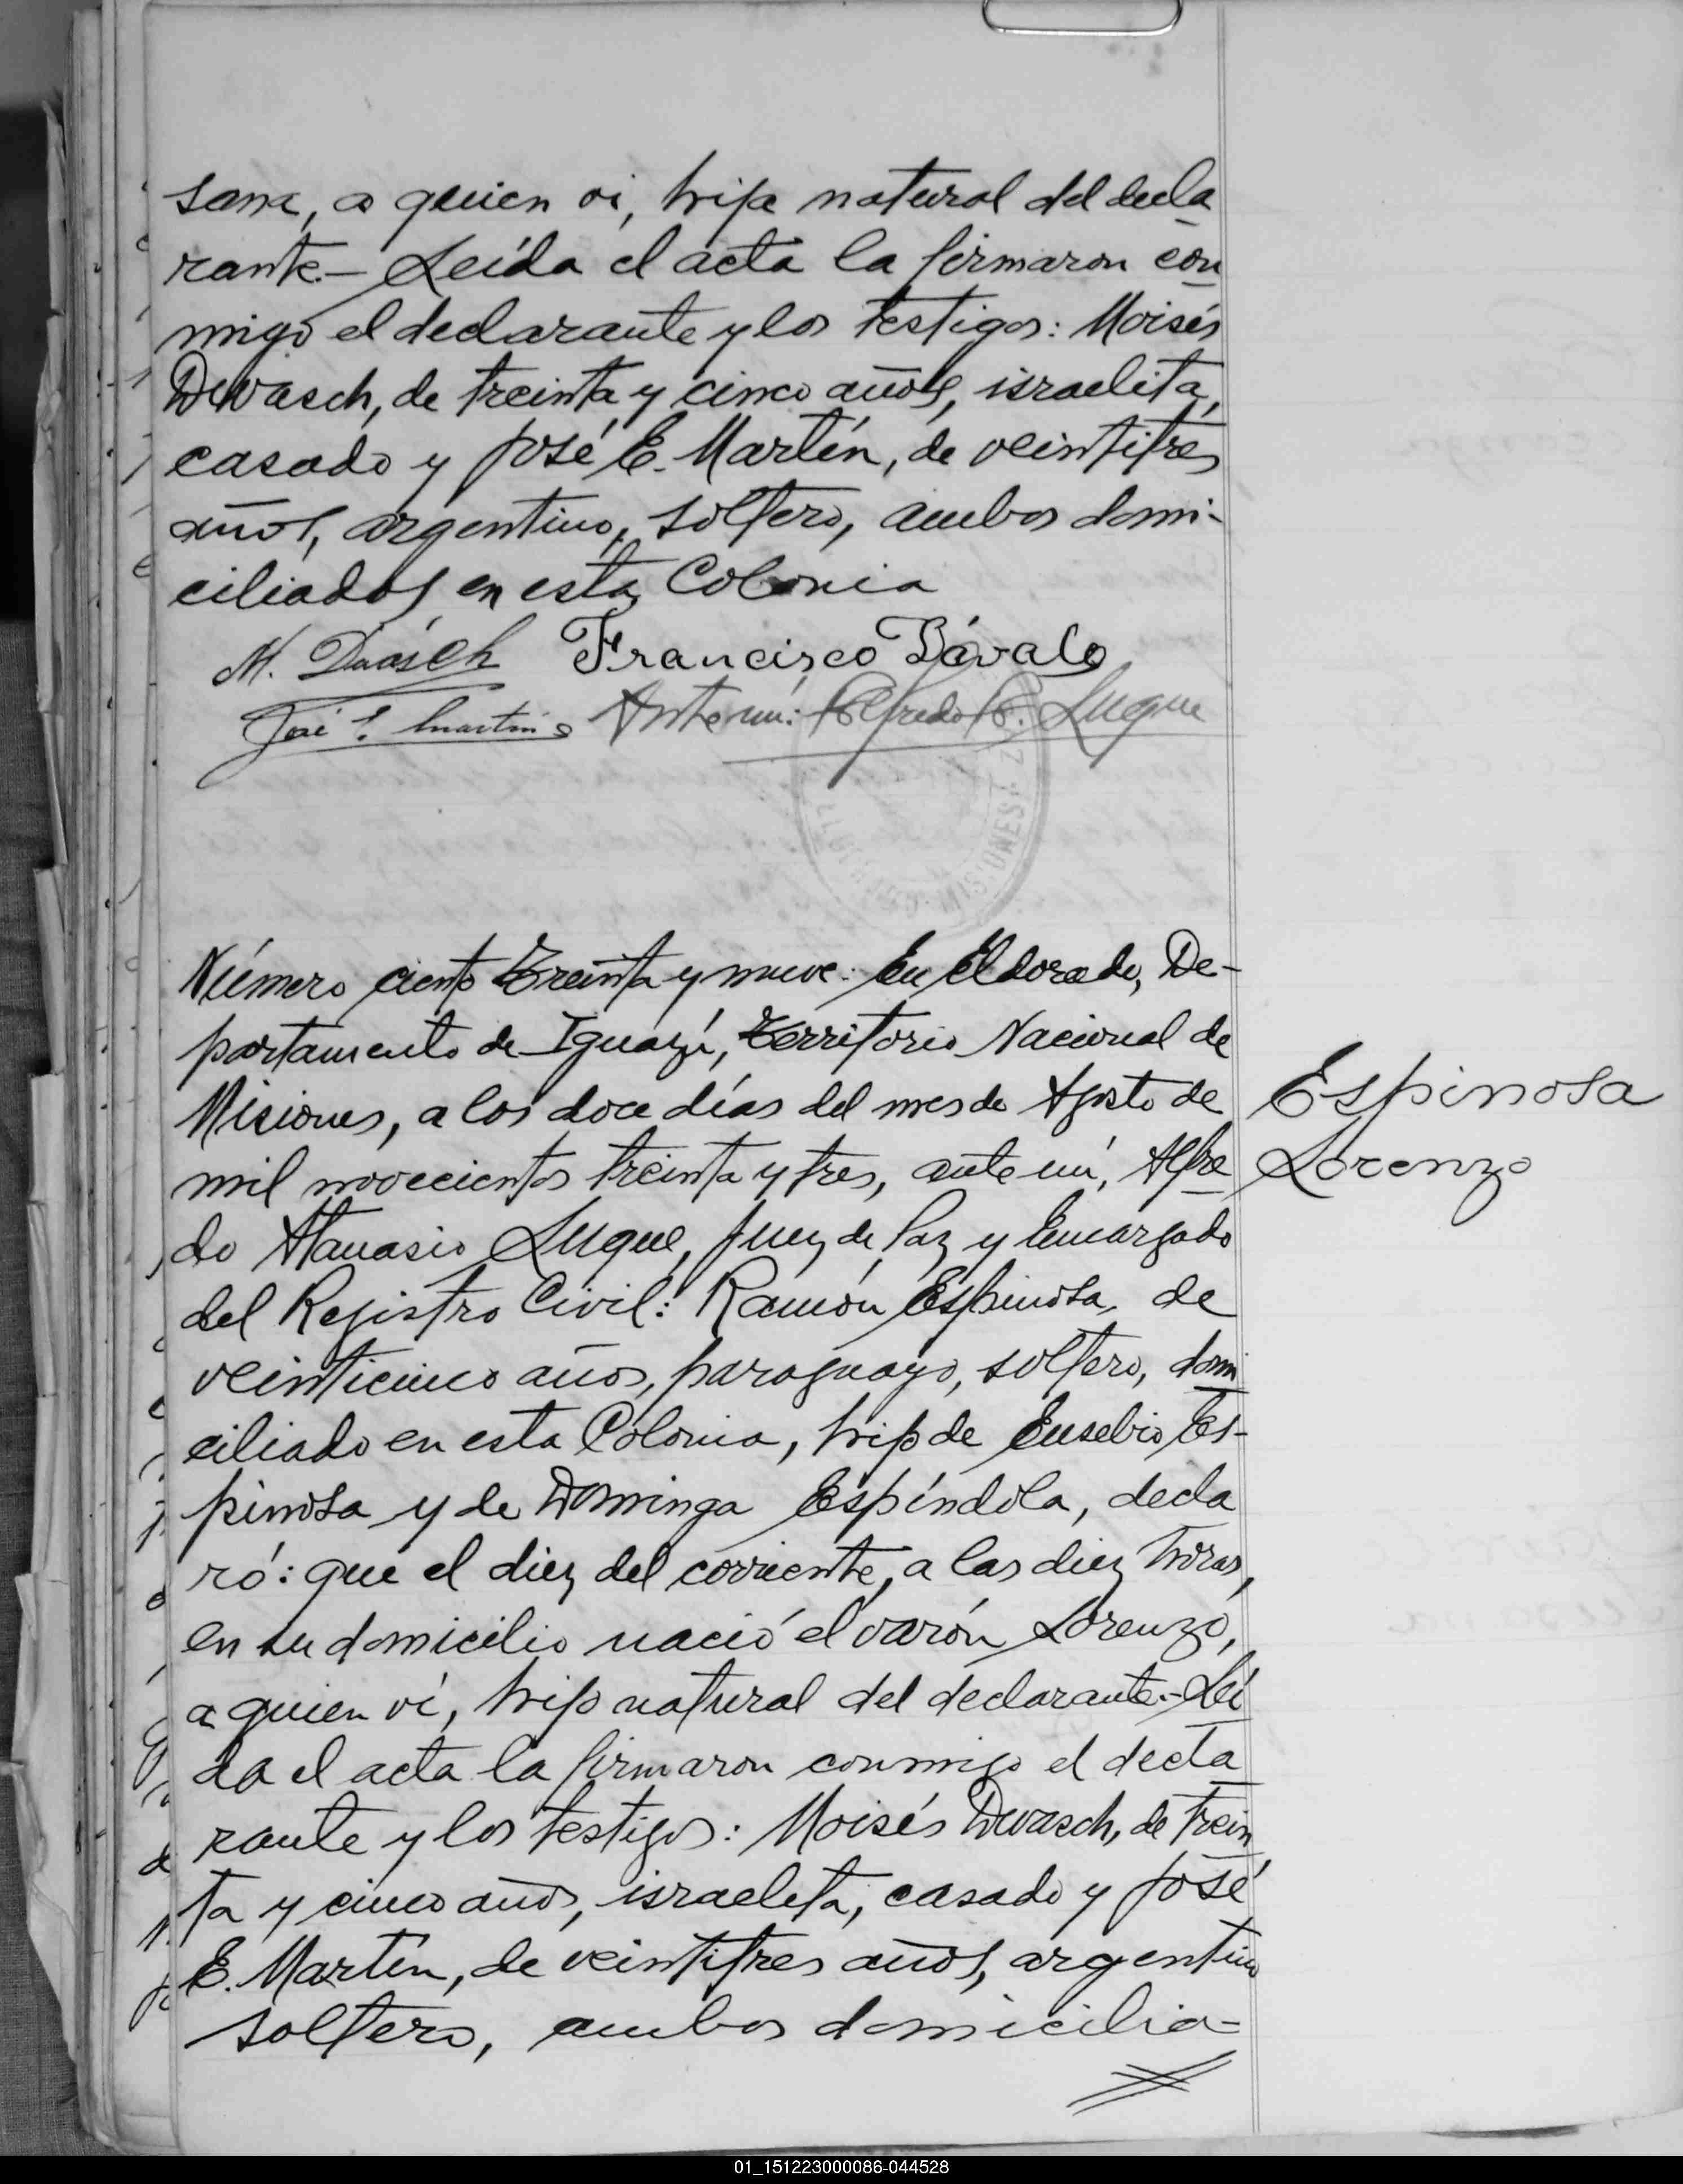 sana, a quien vi, hija natural del decla
rante.- Leída el acta la firmaron con
migo el declarante y los testigos: Moisés
Dwasch, de treinta y cinco años, israelita,
casado y José E. Martín, de veintitres
años, argentino, soltero, ambos domi-
ciliados en esta Colonia
M. Dwasch Francisco Dávalo
José E. Martín Ante mí: Alfredo A. Luque
MISIONES
Número ciento treinta y nueve: En Eldorado, De-
partamento de Iguazú, Territorio Nacional de
Misiones, a los doce días del mes de Agosto de
mil novecientos treinta y tres, ante mí, Alfre
do Atanasio Luque, Juez de Paz y Encargado
del Registro Civil: Ramón Espinosa, de
veinticinco años, paraguayo, soltero, domi
ciliado en esta Colonia, hijo de Eusebio Es-
pinosa y de Dominga Espíndola, decla
ró: que el diez del corriente, a las diez horas,
en su domicilio nació el varón Lorenzo,
a quien ví, hijo natural del declarante.- Leí
da el acta la firmaron conmigo el decla
rante y los testigos: Moisés Dwasch, de trein
ta y cinco años, israelita, casado y José
E. Martín, de veintitres años, argentino
soltero, ambos domicilia-
Espinosa
Lorenzo
01_151223000086-044528